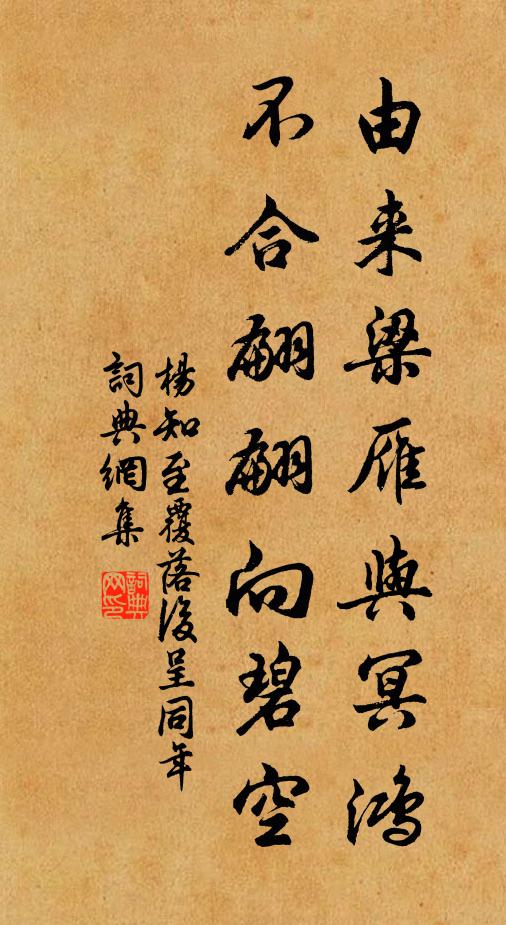 由来梁雁與冥鴻
不合翩翩向碧空
楊知至覆落後呈同年
詞典網集
詞典
网印